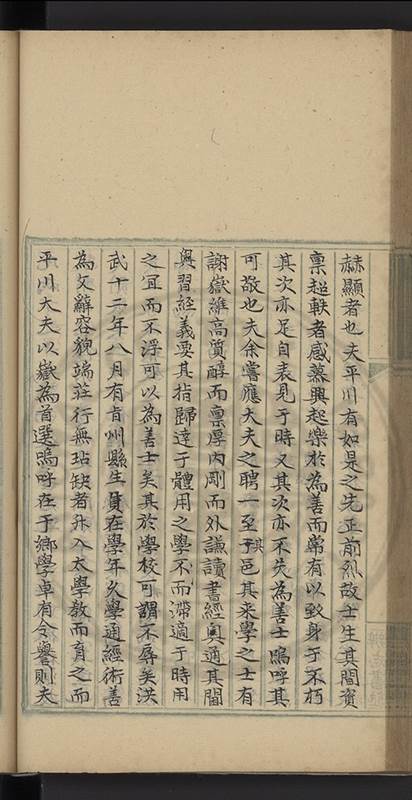 赫顯者也夫平川有如是之先正前烈故士生其間資
稟超軼者感慕興起樂於為善而常有以致身于不朽
其次亦足自表見于時又其次亦不失為善士嗚呼其
可敬也夫余嘗應大夫之聘一至于其邑其來學之士有
謝嶽維高質醇而稟厚內剛而外謙讀書經奧通其閫
奧習經義要其指歸達于體用之學不而滯適于時用
之冝而不浮可以為善士矣其於學校可謂不辱矣洪
武十二年八月有旨州縣生員在學年久學通經術善
為文辭容貌端莊行無玷缺者升入太學教而育之而
平川大夫以嶽為首選嗚呼在于鄉學卓有令譽則夫